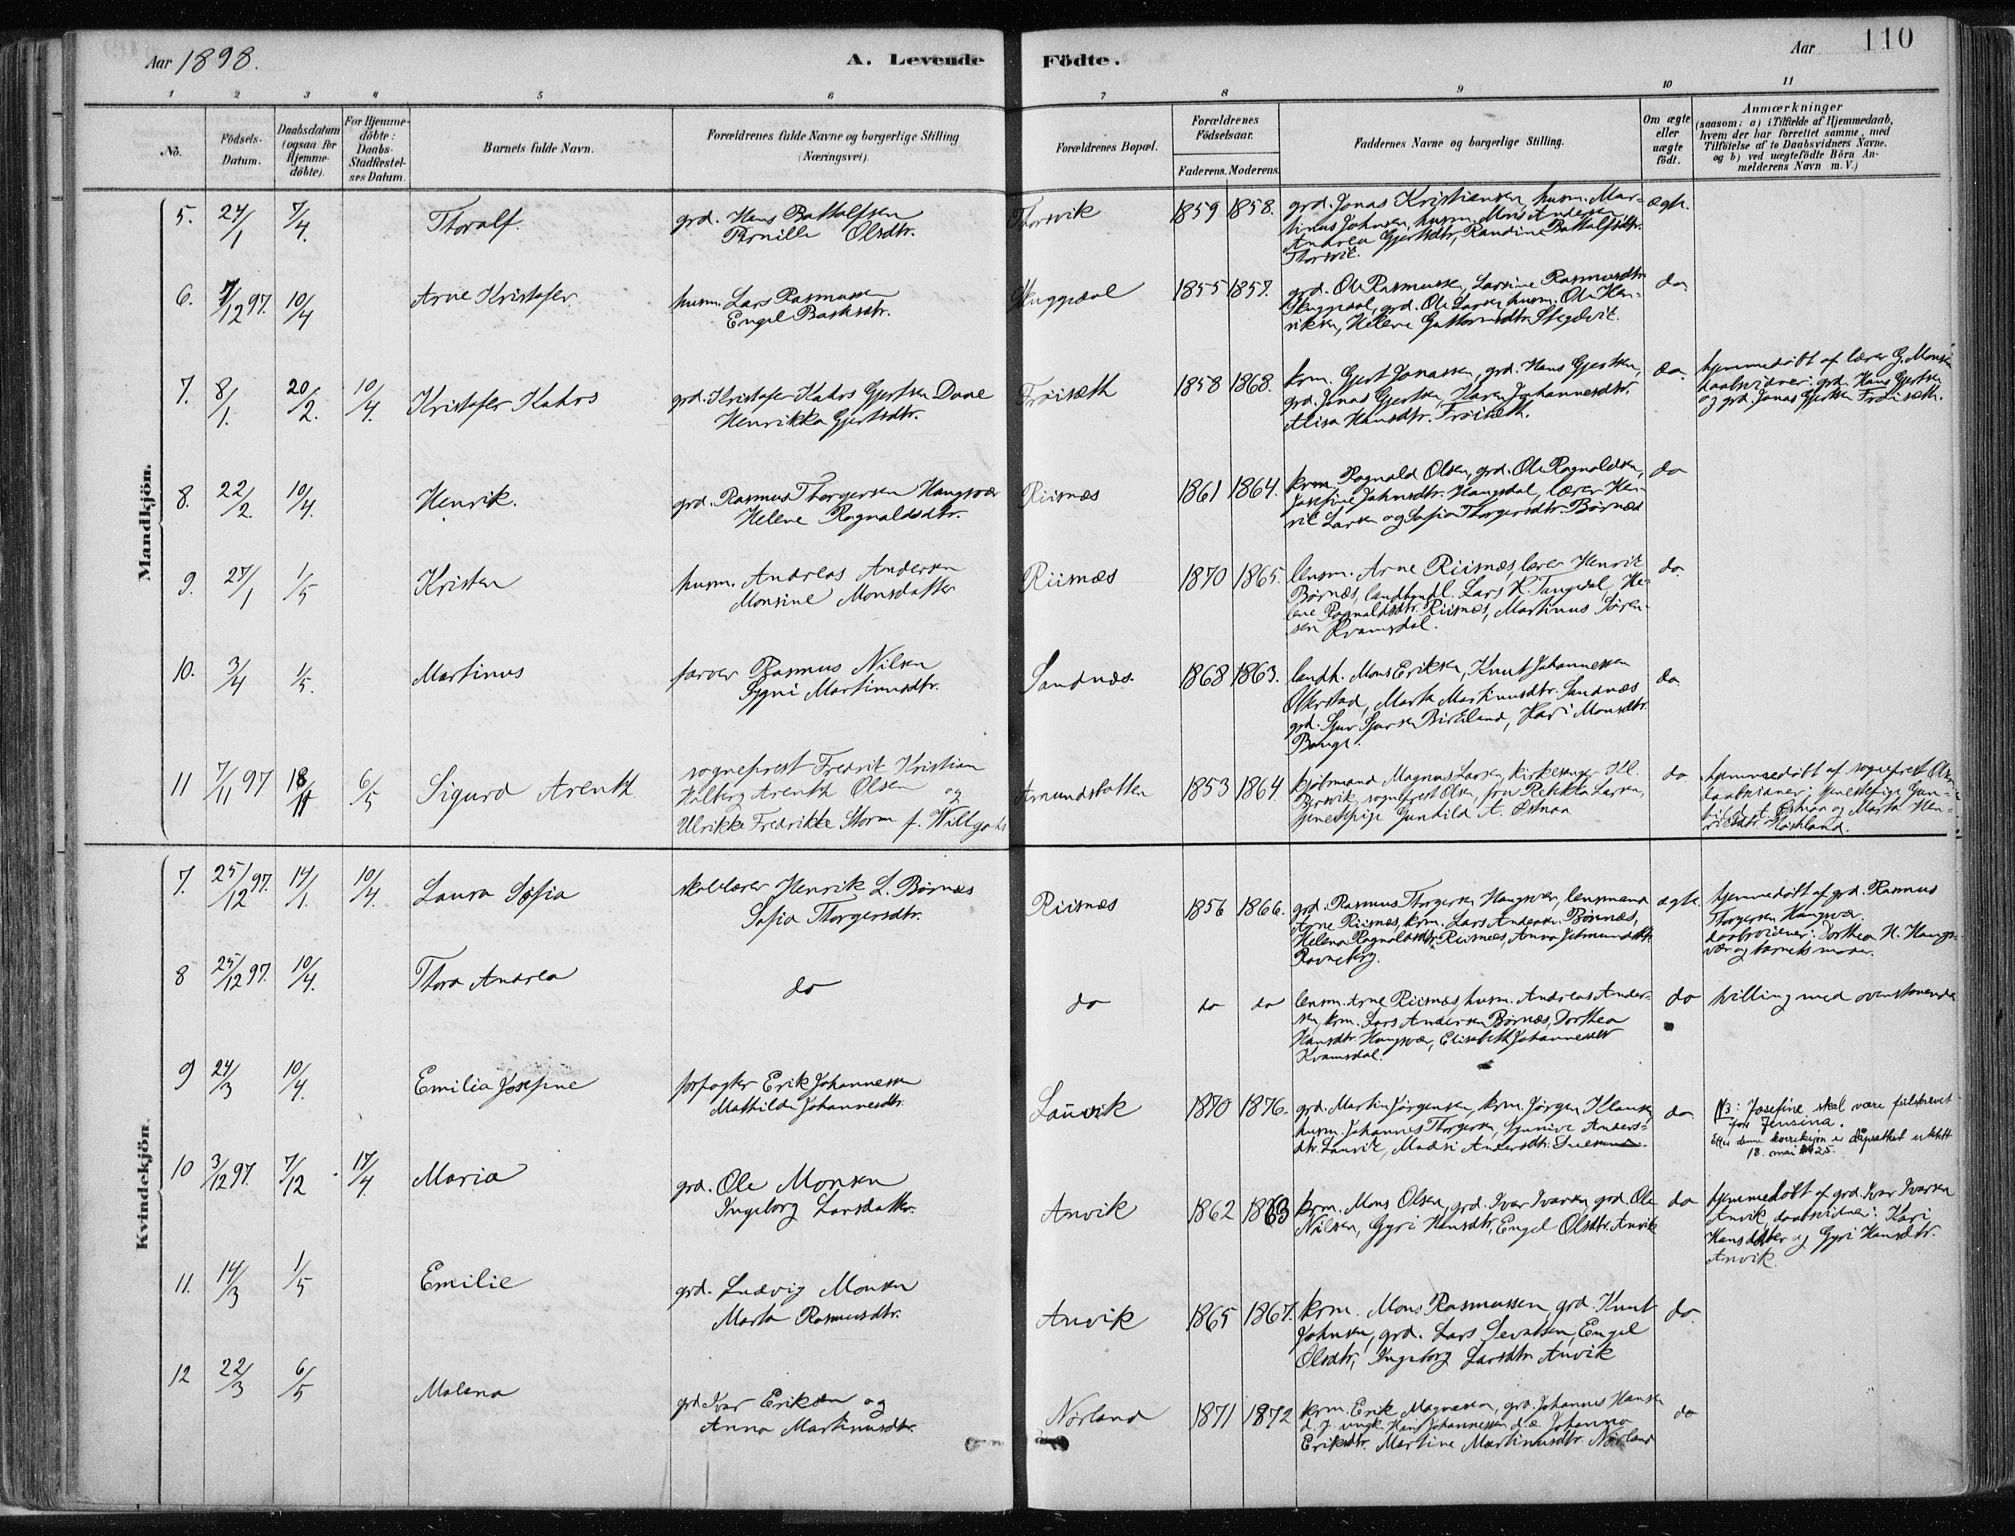 Aar 1898.
A. Levende Födte.
Aar
110
1 2 3 4 5 6 7 8 9 10 11
No.
Födsels-Datum.
Daabsdatum (ogsaa for Hjemme-döbte).
For Hjemme-döbte: Daabs-Stadfæstel-ses Datum.
Barnets fulde Navn.
Forældrenes fulde Navne og borgerlige Stilling (Næringsvei).
Forældrenes Bopæl.
Forældrenes Födselsaar.
Faderens. Moderens.
Faddernes Navne og borgerlige Stilling.
Om ægte eller uægte födt.
Anmærkninger
(saasom: a) i Tilfælde af Hjemmedaab,
hvem der har forrettet samme, med
Tilföielse af to Daabsvidners Navne,
og b) ved uægtefödte Börn An-
melderens Navn m. V.)
Mandkjön.
5. 24/1 7/4. Thoralf. grd. Hans Battalfsen
Pernille Olsdtr.
Thorsvik 1859 1858. grd. Jonas Kristiansen, husm. Mar-
tinus Johnsen, husm. Mons Andersen
Andrea Gjertsdtr, Randine Battalfsdtr.
Thorsvik.
ægte.
6. 7/12 97. 10/4 Arne Kristofer. husm. Lars Rasmussen
Engel Baarsdtr.
Skuggedal 1855 1857. grd. Ole Rasmussen, Larsine Rasmusdtr
Skuggedal, grd. Ole Larsen, husm. Ole Hen-
riksen, Helene Guttormsdtr.
do.
7. 8/1. 20/2. 10/4. Kristofer Kahrs grd. Kristofer Kahrs Gjertsen Daae
Henrikka Gjertsdtr.
Frøisæth 1858 1868. krm. Gjert Jonassen, grd. Hans Gjertsen,
grd. Jonas Gjertsen, Karen Johannesdtr.
Alisa Hansdtr. Frøisæth.
do.
hjemmedøbt af lærer G. Monsen
daabsvidner: grd. Hans Gjertsen
og grd. Jonas Gjertsen Frøisæth.
8. 22/2 10/4. Henrik. grd. Rasmus Thorgersen Haugsvær
Helene Ragnaldsdtr.
Riisnæs 1861 1864. krm. Ragnald Olsen, grd. Ole Ragnaldsen,
Josefine Johnsdtr. Haugsdal, lærer Hen-
rik Larsen og Sofia Thorgersdtr. Børnæs
do
9. 27/1 1/5 Kristen husm. Andreas Andersen
Monsine Monsdatter
Riisnæs 1870 1865. lensm. Arne Riisnæs, lærer Henrik
Børnæs, landhandl. Lars K. Tangdal, He-
lene Ragnaldsdtr. Riisnæs, Martinus Sören-
sen Kvamsdal.
do.
10. 3/4 1/5. Martinus farver Rasmus Nilsen
Gyri Martinusdtr.
Sandnæs. 1868 1863. landh. Mons Eriksen, Knut Johannessen
Martha Martinusdtr. Sandnæs
grd. Sjur Sjursen Birkeland, Kari Monsdtr.
do.
11 7/11 97 18/11 6/5 Sigurd Arentz sogneprest Fredrik Kristian
Holberg Arentz Olsen og
Ulrikke Fredrikke Storm f. Willgohs
Amundstatten 1853 1864. kjøbmand Magnus Larsen, kirkesanger Kl.
sogneprest Olsen, fru Rebekka Larsen,
tjenestepige Gunhild A. Østnaa
do
hjemmedøbt af sogneprest Olsen
daabsvidner: tjenestepige Gun-
hild A. Østnaa og Marta Hen-
riksdtr
Kvindekjön.
7. 25/12 97. 14/1. 10/4. Laura Sofia skolelærer Henrik L. Børnæs
Sofia Thorgersdtr.
Riisnæs 1856 1866. grd. Rasmus Thorgersen Haugsvær, lensmand
Arne Riisnæs, krm. Lars Andersen Børnæs,
Helena Ragnaldsdtr. Riisnæs, Anna Jetmundsdtr.
ægte.
hjemmedøbt af grd. Rasmus
Thorgersen Haugsvær.
daabsvidner: Dorthea H. Haugs-
vær og barnets moder.
8 25/12 97. 10/4. Thora Andrea do
do do do lensm. Arne Riisnæs, husm. Andreas Ander-
sen, krm. Lars Andersen Børnæs, Dorthea
Hansdtr. Haugsvær, Elisabeth Johannesdtr
Kvamsdal.
do
tvilling med ovenstaaende
9 24/3 10/4. Emilia Josefine forpagter Erik Johannessen
Mathilde Johannesdtr.
Lauvik 1870 1876. grd. Martin Jörgensen, krm. Jörgen Klausen
husm. Johannes Thorgersen, Synnive Anders-
dtr. Lauvik, Madsi Andersdtr.
do
NB: Josefine skal være feilskrevet
for Jensina.
Efter denne korreksjon er dåpsattest utstedt
18. mai 1925.
10 3/12 97. 7/12 17/4. Maria grd. Ole Monsen
Ingeborg Larsdatter.
Anvik 1862 1863 krm. Mons Olsen, grd. Ivar Ivarsen grd. Ole
Nilsen, Gyri Hansdtr, Engel Olsdtr. Anvik
do
hjemmedøbt af grd. Ivar Ivarsen
Anvik daabsvidner: Kari
Hansdatter og Gyri Hansdtr.
Anvik.
11. 14/3 1/5 Emilie grd. Ludvig Monsen
Marta Rasmusdtr.
Anvik 1865 1867. krm. Mons Rasmussen, grd. Knut
Johnsen, grd. Lars Sevatsen, Engel
Olsdtr, Ingeborg Larsdtr. Anvik
do.
12 22/3 6/5 Malena grd Ivar Eriksen og
Anna Martinusdtr.
Nørland 1871 1872 krm. Erik Magnesen, grd. Johannes Hansen
d. y. ungk. Hans Johannessen d. æ. Johanna
Eriksdtr. Martine Martinusdtr. Nørland
do